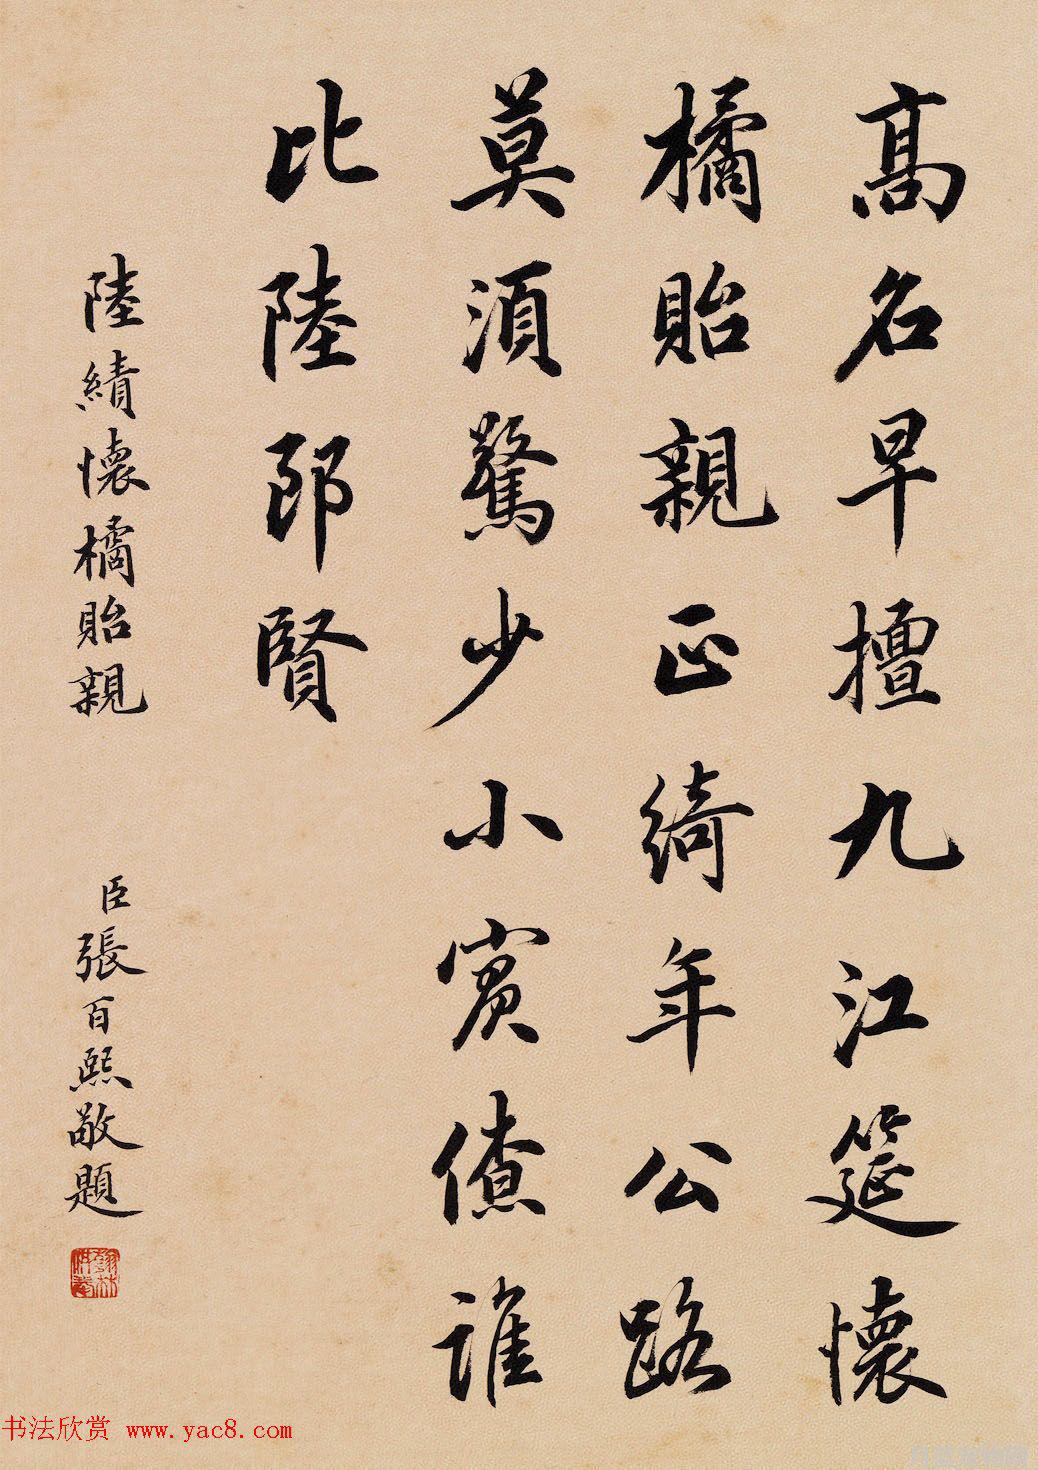 高名早擅九江筵懷
橘貽親正綺年公路
莫須驚少小賓僚誰
比陸郎賢
陸績懷橘貽親
臣張百熙敬題
书法欣赏 www.yac8.com